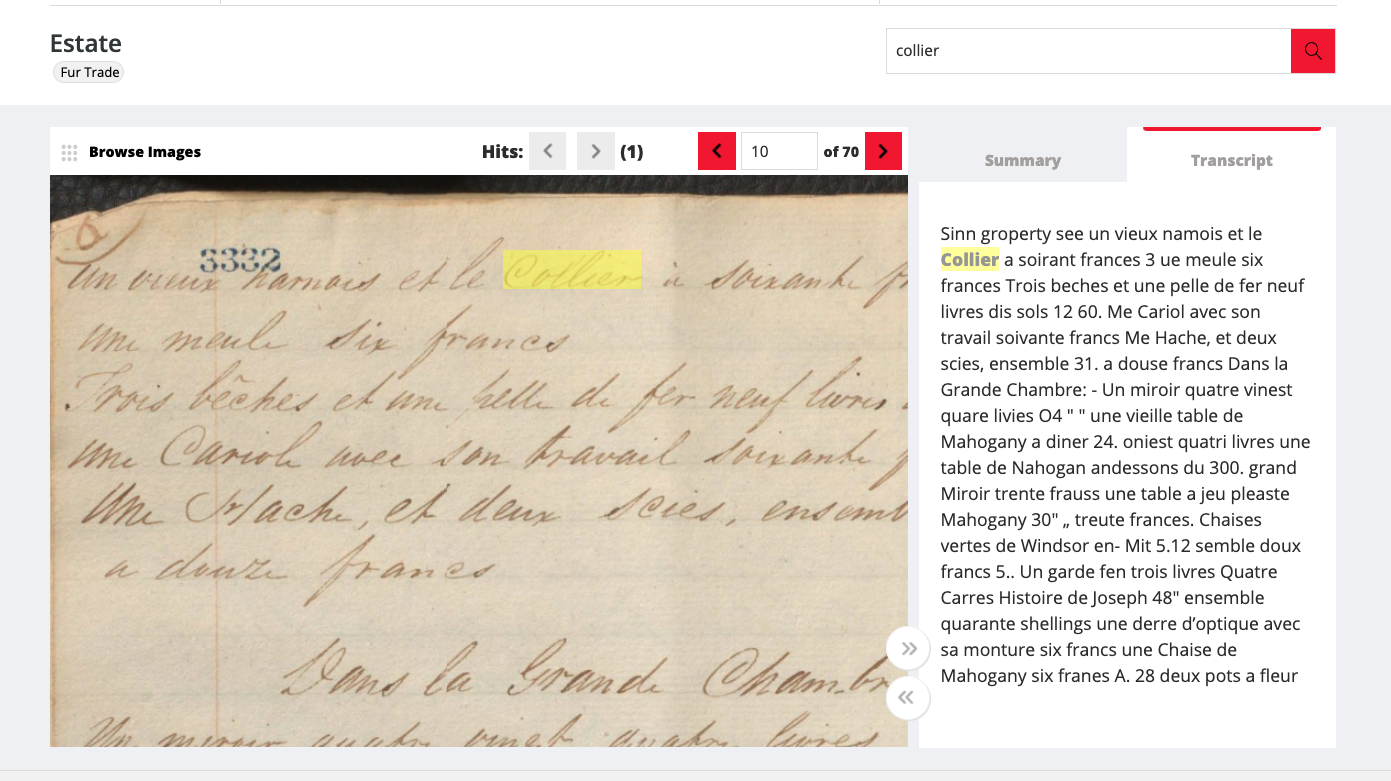 Estate
Fur Trade
collier
Browse Images
Hits:
(1)
10
of 70
3332
un vieux harnais et le Collier à soixante fr
une meule six francs
Trois bêches et une pelle de fer neuf livres
une Cariole avec son travail soixante f
Une Hache, et deux scies, ensemb
a douze francs
Dans la Grande Chambr
Un miroir quatre vingt quatre livres
Summary
Transcript
Sinn groperty see un vieux namois et le
Collier a soirant frances 3 ue meule six
frances Trois beches et une pelle de fer neuf
livres dis sols 12 60. Me Cariol avec son
travail soivante francs Me Hache, et deux
scies, ensemble 31. a douse francs Dans la
Grande Chambre: - Un miroir quatre vinest
quare livies O4 " " une vieille table de
Mahogany a diner 24. oniest quatri livres une
table de Nahogan andessons du 300. grand
Miroir trente frauss une table a jeu pleaste
Mahogany 30" „ treute frances. Chaises
vertes de Windsor en- Mit 5.12 semble doux
francs 5.. Un garde fen trois livres Quatre
Carres Histoire de Joseph 48" ensemble
quarante shellings une derre d’optique avec
sa monture six francs une Chaise de
Mahogany six franes A. 28 deux pots a fleur